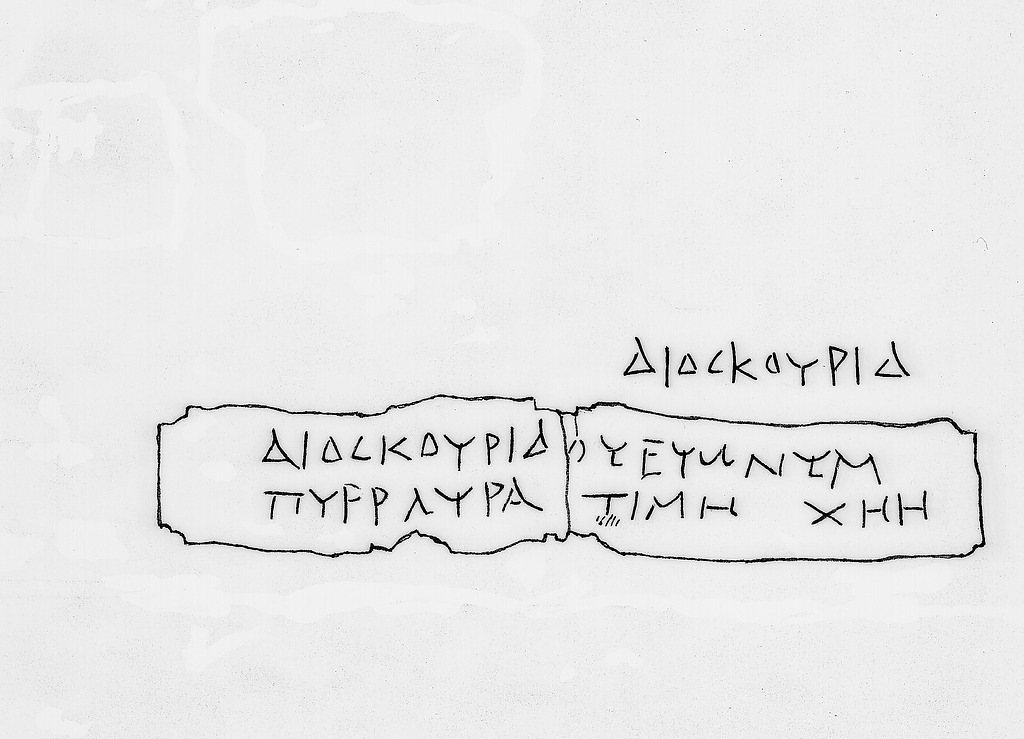 ΔΙΟϹΚΟΥΡΙΔ
ΔΙΟϹΚΟΥΡΙΔΟΥΕΥΩΝΥΜ
ΠΥΕΡΛΥΡΑ ΤΙΜΗ ΧΗΗ